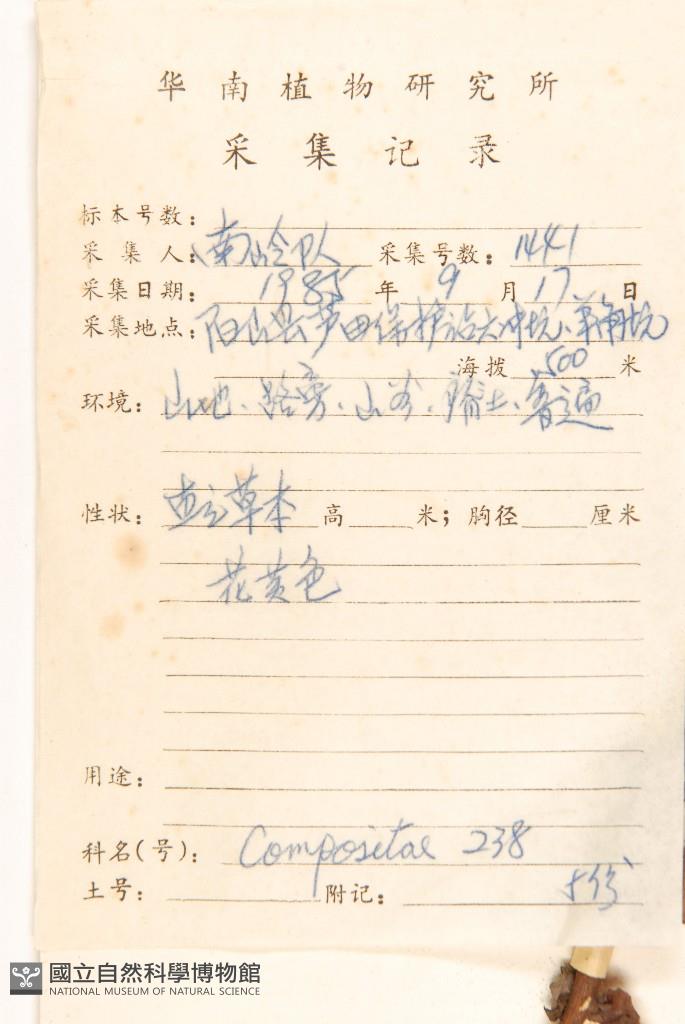 华南植物研究所
采集记录
标本号数：
采集人：南岭队 采集号数：1441
采集日期：1985年9月17日
采集地点：阳山县芦田保护站大冲坑、羊角坑
海拨 500 米
环境：山地、路旁、山谷、瘠土、普遍
性状：直立草本 高 米；胸径 厘米
花黄色
用途：
科名(号)：Compositae 238
土号： 附记：十份
國立自然科學博物館
NATIONAL MUSEUM OF NATURAL SCIENCE